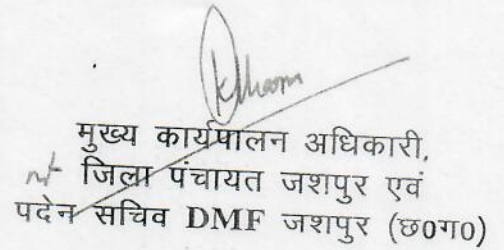 मुख्य कार्यपालन अधिकारी,
जिला पंचायत जशपुर एवं
पदेन सचिव DMF जशपुर (छ0ग0)